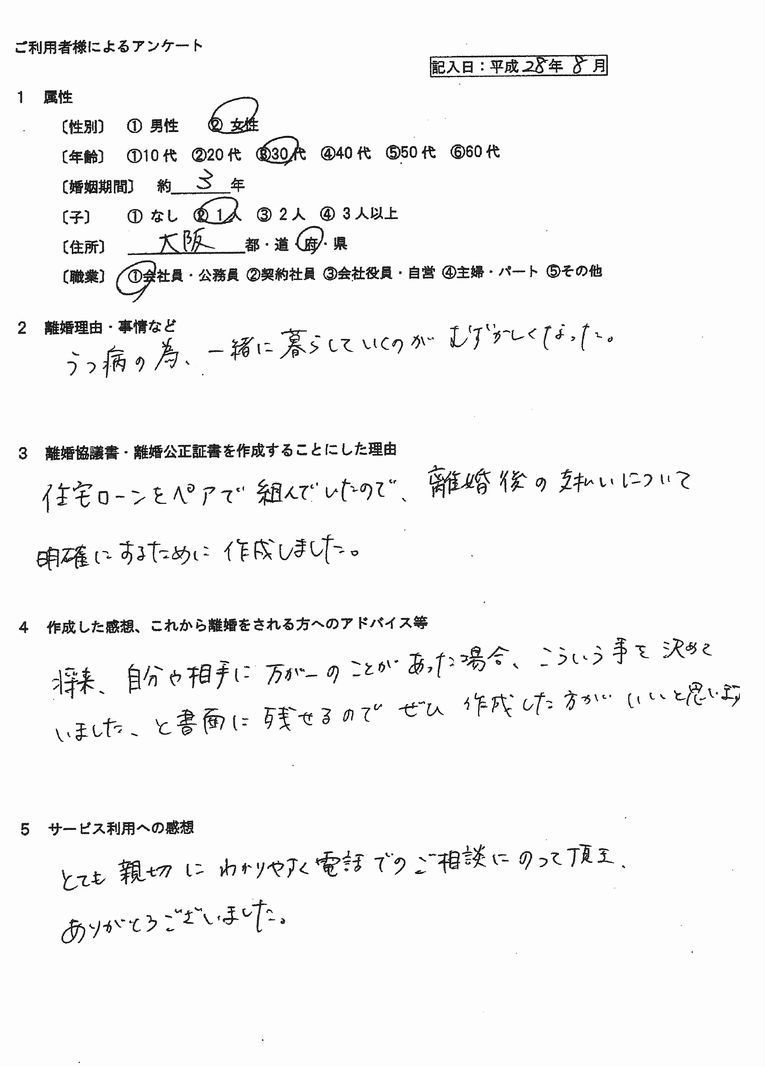 ご利用者様によるアンケート
記入日：平成28年8月
1 属性
〔性別〕 ① 男性 ② 女性
〔年齢〕 ①10代 ②20代 ③30代 ④40代 ⑤50代 ⑥60代
〔婚姻期間〕 約 3 年
〔子〕 ① なし ② 1人 ③ 2人 ④ 3人以上
〔住所〕 大阪 都・道・府・県
〔職業〕 ①会社員・公務員 ②契約社員 ③会社役員・自営 ④主婦・パート ⑤その他
2 離婚理由・事情など
うつ病の為、一緒に暮らしていくのがむずかしくなった。
3 離婚協議書・離婚公正証書を作成することにした理由
住宅ローンをペアで組んでいたので、離婚後の支払いについて
明確にするために作成しました。
4 作成した感想、これから離婚をされる方へのアドバイス等
将来、自分や相手に万が一のことがあった場合、こういう事を決めて
いました、と書面に残せるのでぜひ作成した方がいいと思います
5 サービス利用への感想
とても親切にわかりやすく電話でのご相談にのって頂き、
ありがとうございました。